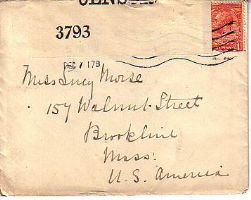 3793
DEC 7 17
Miss Lucy Morse
157 Walnut Street
Brookline
Mass.
U. S. America